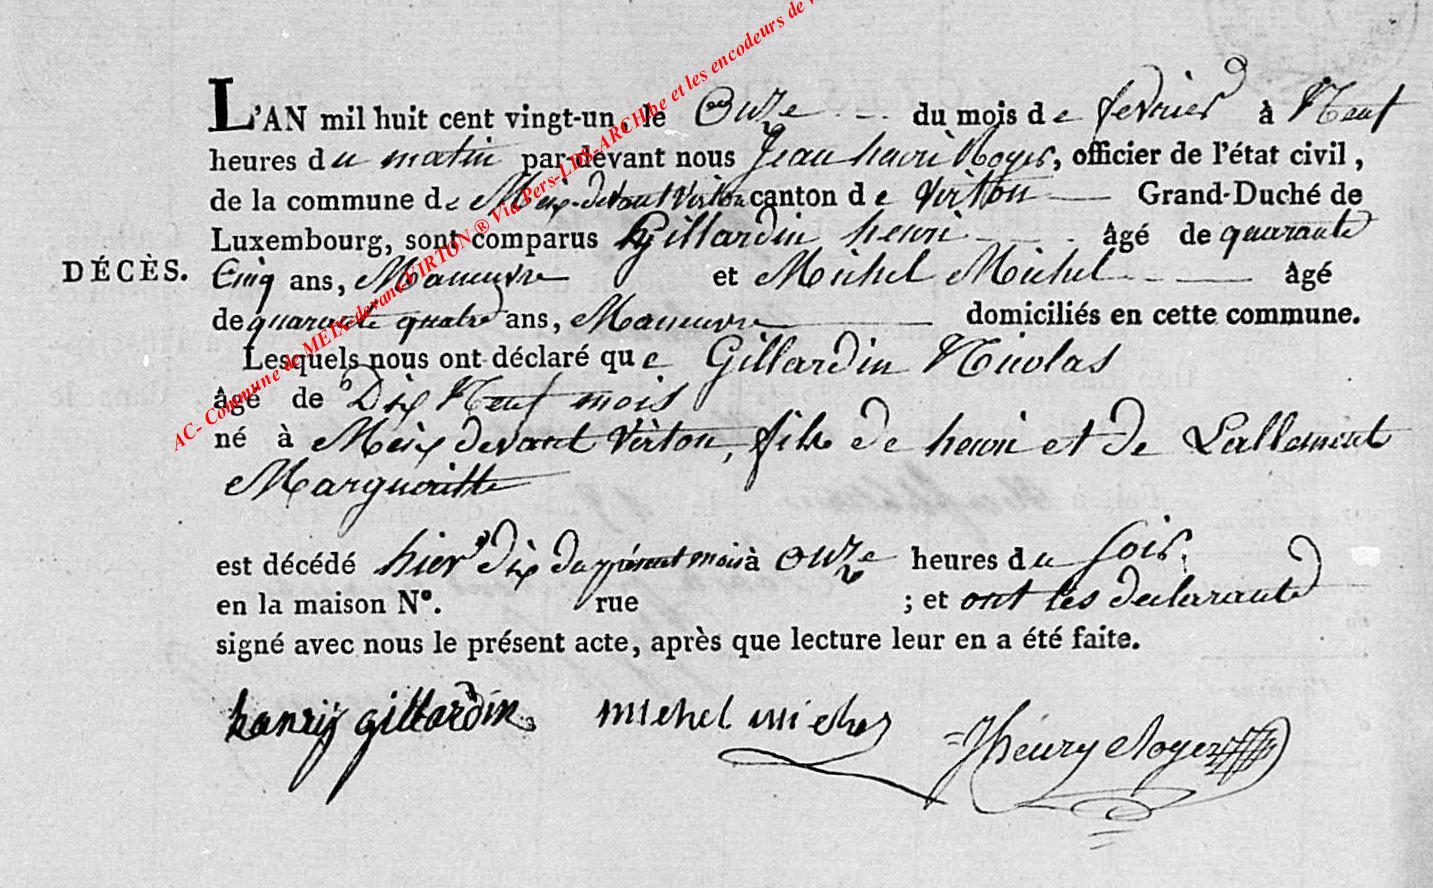 L'AN mil huit cent vingt-un, le Onze du mois de fevrier à Neuf
heures du matin par-devant nous Jean henri Royer, officier de l'état civil,
de la commune de Meix-devant Virton canton de Virton Grand-Duché de
Luxembourg, sont comparus Gillardin henri âgé de quarante
DÉCÈS. Cinq ans, Maneuvre et Michel Michel âgé
de quarante quatre ans, Maneuvre domiciliés en cette commune.
Lesquels nous ont déclaré que Gillardin Nicolas
âgé de Dix Neuf mois
né à Meix devant Virton, fils de henri et de Lallement
Margueritte
est décédé hier dix du présent mois à Onze heures du soir
en la maison N°. rue ; et ont les declarants
signé avec nous le présent acte, après que lecture leur en a été faite.
hanrij gillardin michel michel JhéuryRoyer
AC- Commune de MEIX devant VIRTON ® Via Pers-LDS-ARCH.be et les encodeurs de